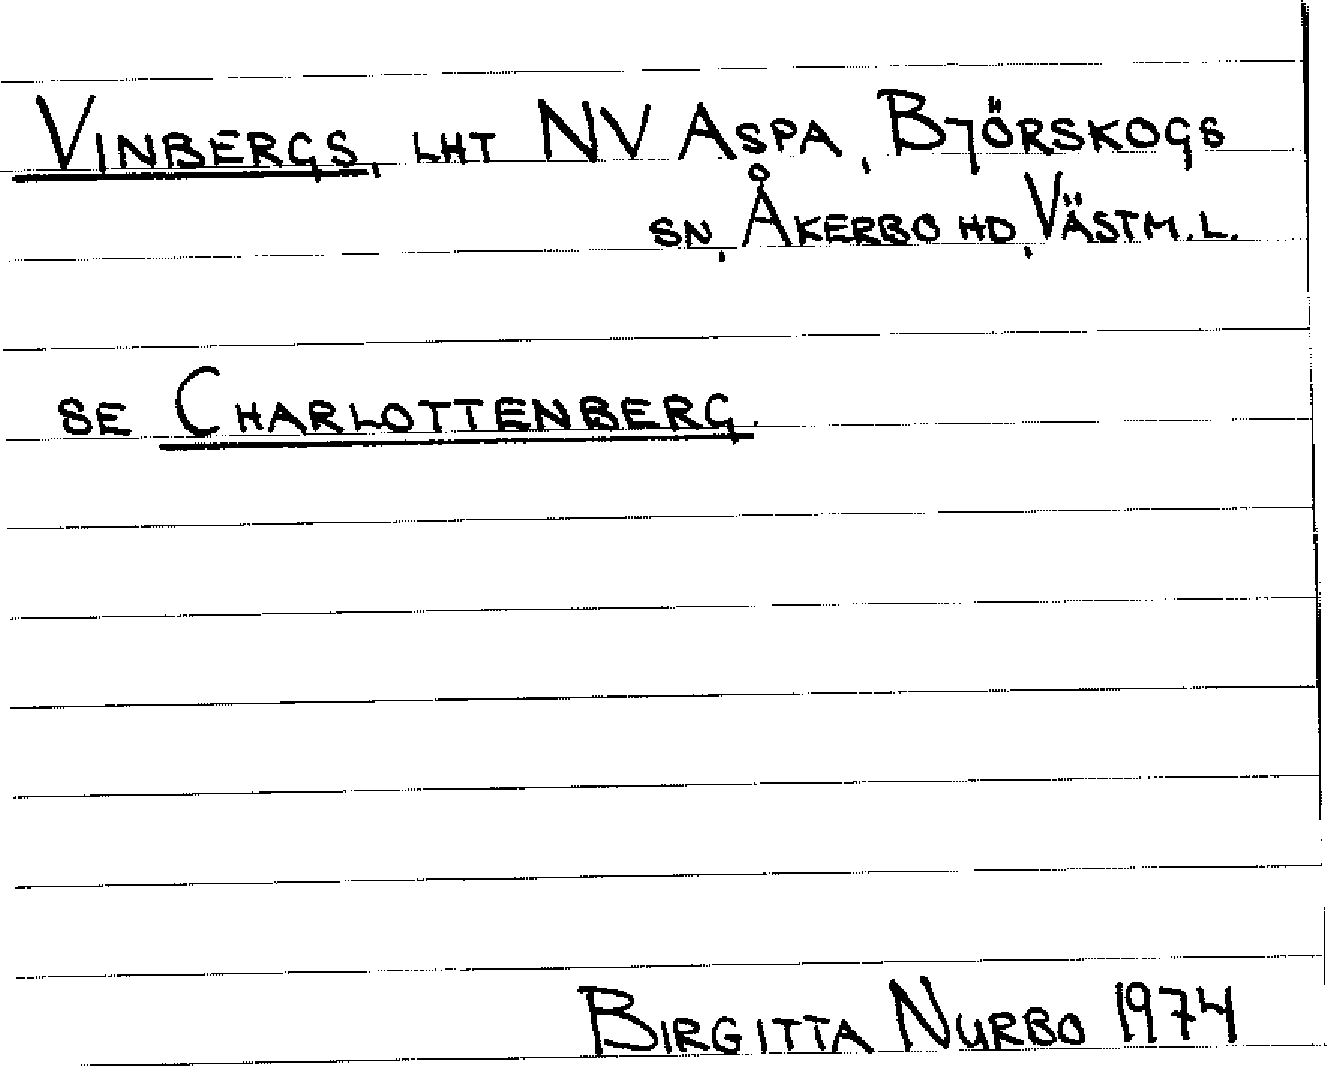 VINBERGS, LHT NV ASPA, BJÖRSKOGS
SN, ÅKERBO HD, VÄSTM.L.
SE CHARLOTTENBERG.
BIRGITTA NURBO 1974